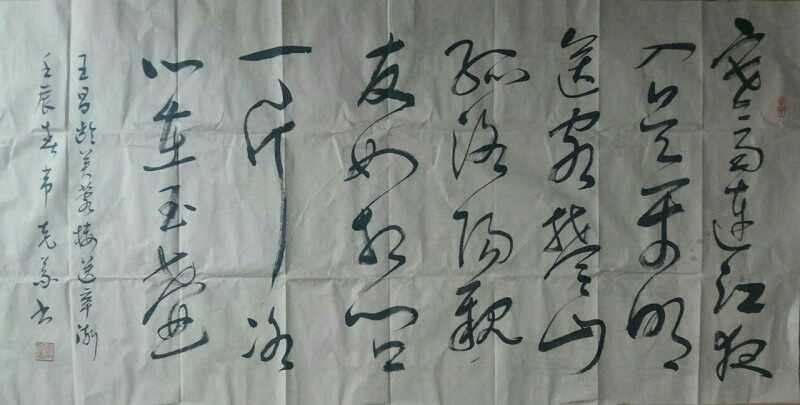 寒雨连江夜
入吴平明
送客楚山
孤洛阳親
友如相问
一片冰
心在玉壶
王昌龄芙蓉楼送辛渐
壬辰春韦克义书